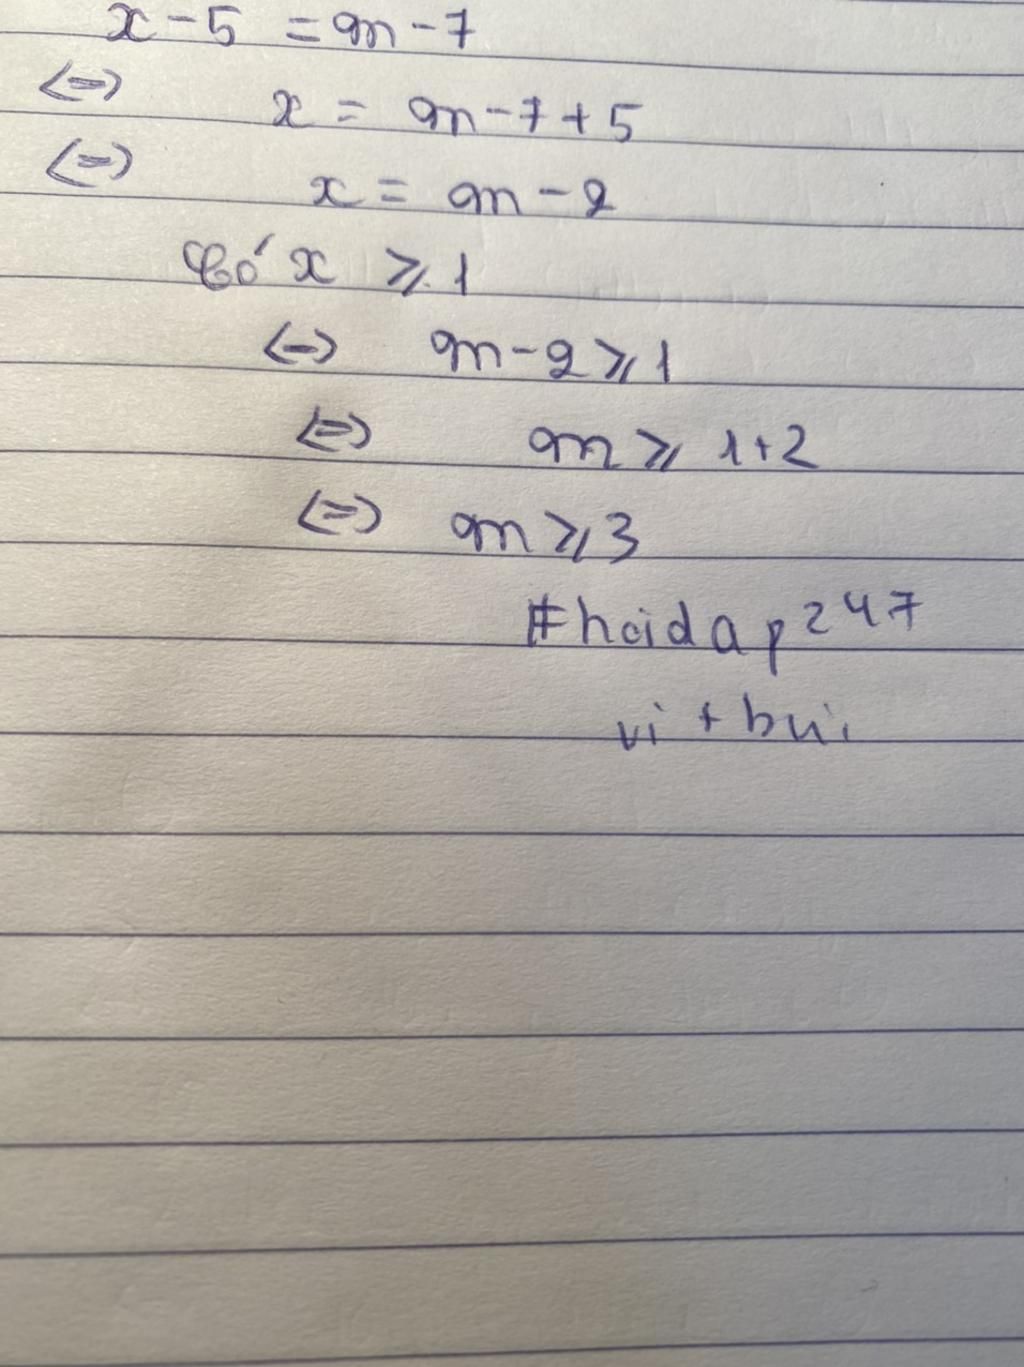 x - 5 = m - 7
<=> x = m - 7 + 5
<=> x = m - 2
Có x ≥ 1
<=> m - 2 ≥ 1
<=> m ≥ 1 + 2
<=> m ≥ 3
#hoidap247
vi + bui